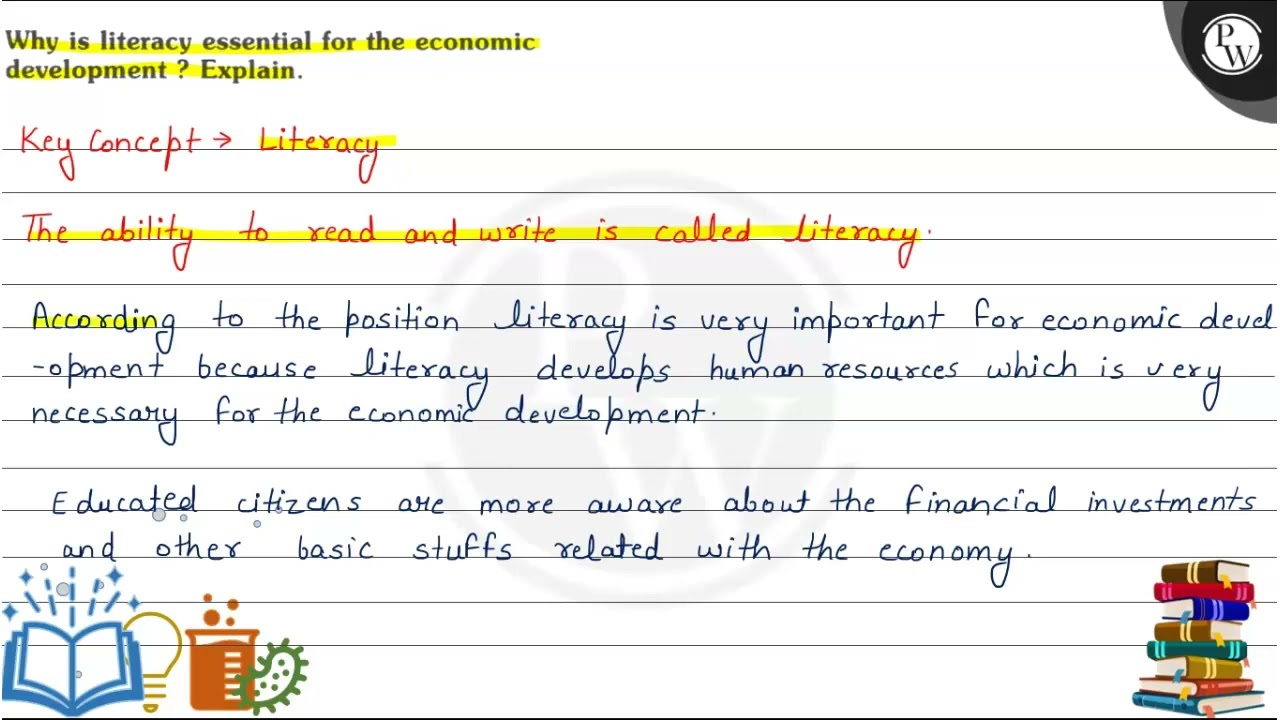 Why is literacy essential for the economic
development ? Explain.
PW
Key Concept → Literacy
The ability to read and write is called literacy.
According to the position literacy is very important for economic devel
-opment because literacy develops human resources which is very
necessary for the economic development.
Educated citizens are more aware about the financial investments
and other basic stuffs related with the economy.